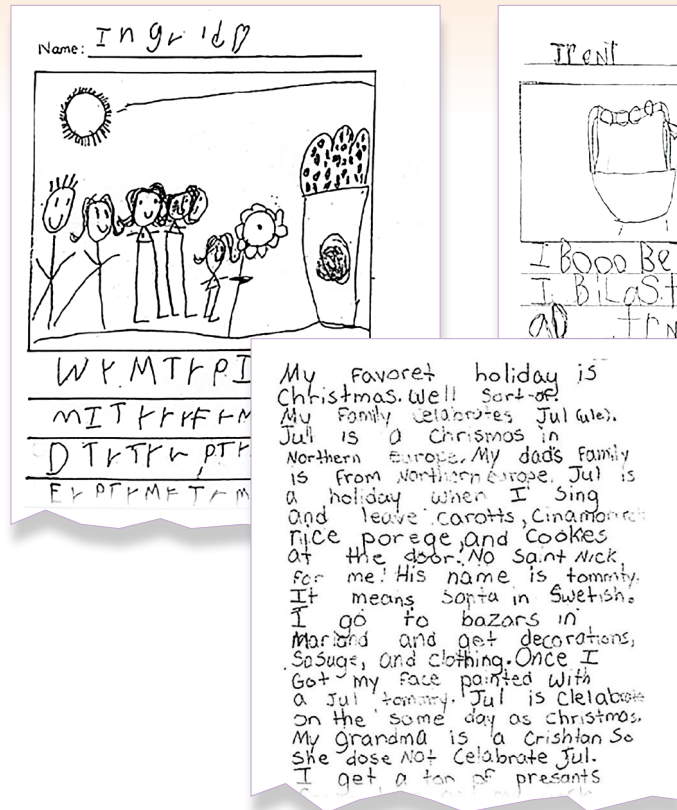 Name: Ingrid
WrMTrPI
mITrrrFrM
DTrTrrPTr
ErPTrMFTrM
Trent
I Booo Be
I BiLaST
My Favoret holiday is
Christmas. Well Sort-of!
My Family Celabrates Jul (ule).
Jul is a Chrismos in
Northern Europe. My dad's Family
is From Northern Europe. Jul is
a holiday when I sing
and leave carotts, Cinamon
rice porege, and Cookes
at the door. No Saint Nick
For me! His name is tommty.
It means Santa in Swetish.
I go to bazars in
Mariand and get decorations,
Sosuge, and clothing. Once I
Got my Face painted with
a Jul tommty. Jul is Clelabrate
on the same day as christmas.
My grandma is a Crishtan So
She dose Not Celabrate Jul.
I get a ton of presants